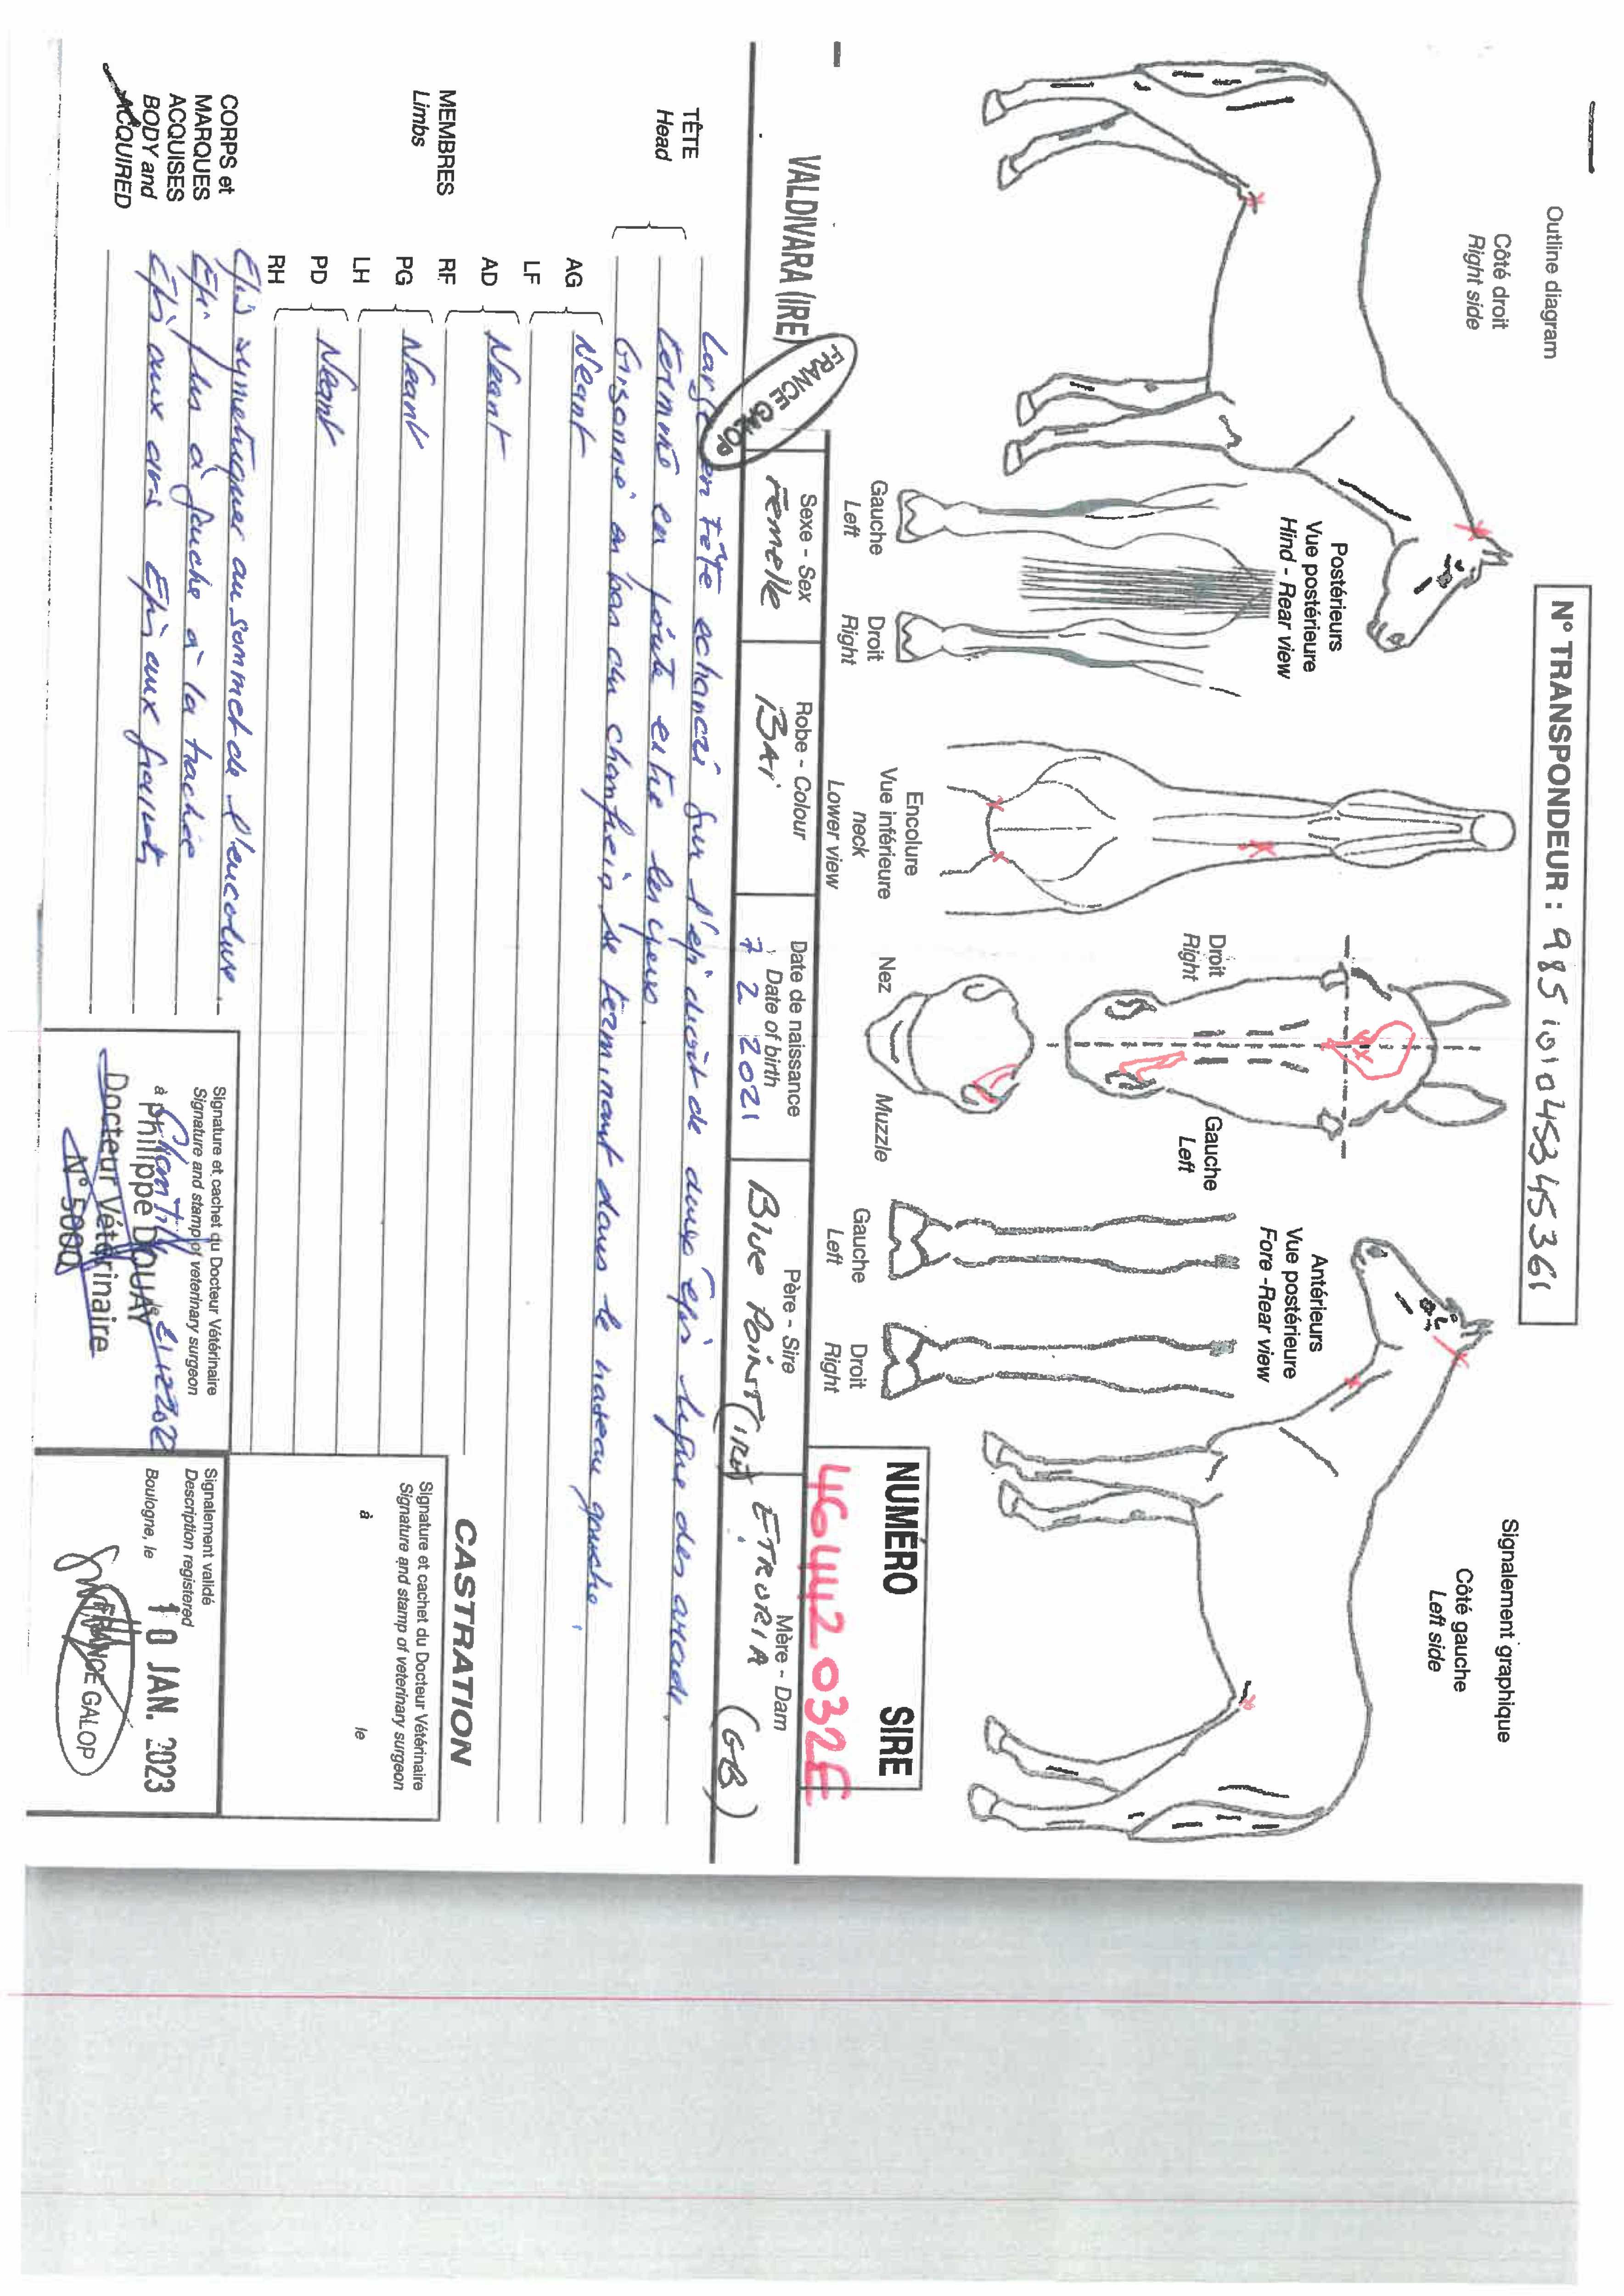 Outline diagram
Côté droit
Right side
N° TRANSPONDEUR : 985101045345361
Signalement graphique
Côté gauche
Left side
Postérieurs
Vue postérieure
Hind - Rear view
Gauche
Left
Droit
Right
Encolure
Vue inférieure
neck
Lower view
Droit
Right
Gauche
Left
Nez
Muzzle
Antérieurs
Vue postérieure
Fore - Rear view
Gauche
Left
Droit
Right
NUMÉRO SIRE
46442032E
VALDIVARA (IRE)
FRANCE GALOP
Sexe - Sex
Femelle
Robe - Colour
BAi
Date de naissance
Date of birth
7 2 2021
Père - Sire
BLUE POINT (IRE)
Mère - Dam
ETRURIA (GB)
TÊTE
Head
Large en tête échancré sur l'épi droit de deux épis ligne des arcades,
terminé en pointe entre les yeux.
Grisonné en bas du chanfrein se terminant dans le naseau gauche.
MEMBRES
Limbs
AG
LF
Néant
AD
RF
Néant
PG
LH
Néant
PD
RH
Néant
CORPS et
MARQUES
ACQUISES
BODY and
ACQUIRED
Epis symétriques au sommet de l'encolure.
Epi à gauche à la trachée
Epis aux ars Epis aux grassets
CASTRATION
Signature et cachet du Docteur Vétérinaire
Signature and stamp of veterinary surgeon
à le
Signature et cachet du Docteur Vétérinaire
Signature and stamp of veterinary surgeon
à
Philippe DOUAY
Docteur Vétérinaire
N° 5000
Signalement validé
Description registered
Boulogne, le 10 JAN. 2023
FRANCE GALOP